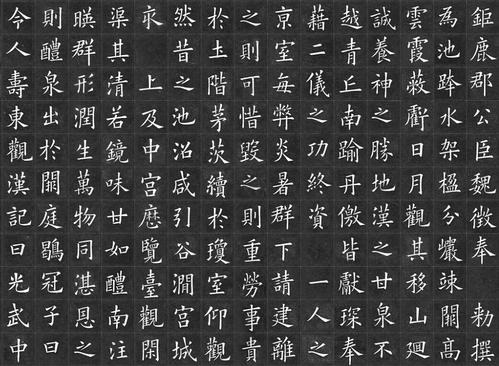 鉅鹿郡公臣魏徵奉勅撰
為池跨水架楹分巖竦闕高
雲霞蔽虧日月觀其移山廻
誠養神之勝地漢之甘泉不
越青丘南踰丹儌皆獻琛奉
藉二儀之功終資一人之
京室每弊炎暑群下請建離
之則可惜毀之則重勞事貴
於土階茅茨續於瓊室仰觀
然昔之池沼咸引谷澗宮城
求上及中宮歷覽臺觀閑
渠其清若鏡味甘如醴南注
暎群形潤生萬物同湛恩之
則醴泉出於闕庭鶡冠子曰
今人壽東觀漢記曰光武中